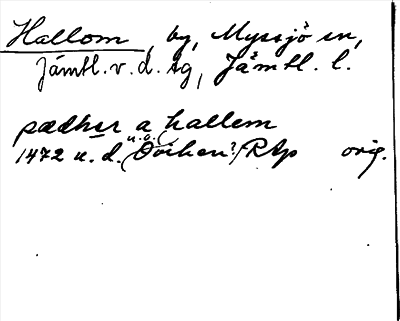 Hallom, by, Myssjö sn,
Jämtl. v. d. tg, Jämtl. l.
pædher a hallem
1472 u. d. (Oviken?) RAp orig.